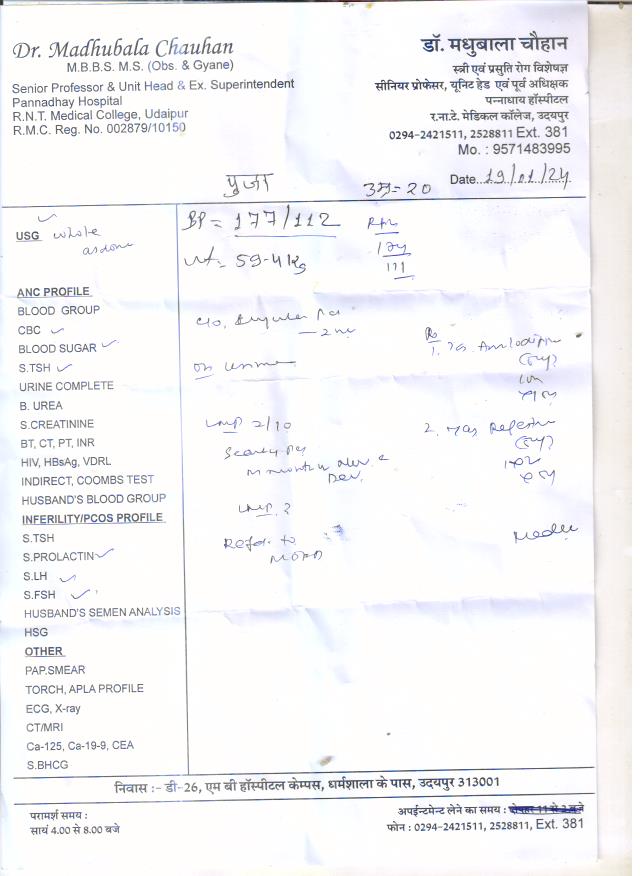 Dr. Madhubala Chauhan
M.B.B.S. M.S. (Obs. & Gyane)
Senior Professor & Unit Head & Ex. Superintendent
Pannadhay Hospital
R.N.T. Medical College, Udaipur
R.M.C. Reg. No. 002879/10150
डॉ. मधुबाला चौहान
स्त्री एवं प्रसुति रोग विशेषज्ञ
सीनियर प्रोफेसर, यूनिट हेड एवं पूर्व अधिक्षक
पन्नाधाय हॉस्पिटल
र.ना.टे. मेडिकल कॉलेज, उदयपुर
0294-2421511, 2528811 Ext. 381
Mo. : 9571483995
पुजा
उम्र= 20
Date..19/01/24
USG whole
BP = 177/112
wt = 59.4 Kg
111
ANC PROFILE
BLOOD GROUP
CBC
BLOOD SUGAR
S.TSH
URINE COMPLETE
B. UREA
S.CREATININE
BT, CT, PT, INR
HIV, HBsAg, VDRL
INDIRECT, COOMBS TEST
HUSBAND'S BLOOD GROUP
INFERILITY/PCOS PROFILE
S.TSH
S.PROLACTIN
S.LH
S.FSH
HUSBAND'S SEMEN ANALYSIS
HSG
OTHER
PAP.SMEAR
TORCH, APLA PROFILE
ECG, X-ray
CT/MRI
Ca-125, Ca-19-9, CEA
S.BHCG
c/o
on
LMP 2/10
LMP ?
Refer to
1.
2.
निवास :- डी-26, एम बी हॉस्पीटल केम्पस, धर्मशाला के पास, उदयपुर 313001
परामर्श समय :
सायं 4.00 से 8.00 बजे
अपईन्टमेन्ट लेने का समय :
फोन : 0294-2421511, 2528811, Ext. 381